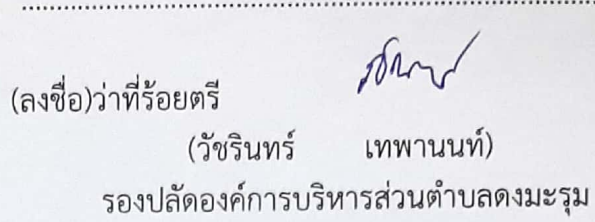 (ลงชื่อ)ว่าที่ร้อยตรี
(วัชรินทร์ เทพานนท์)
รองปลัดองค์การบริหารส่วนตำบลดงมะรุม